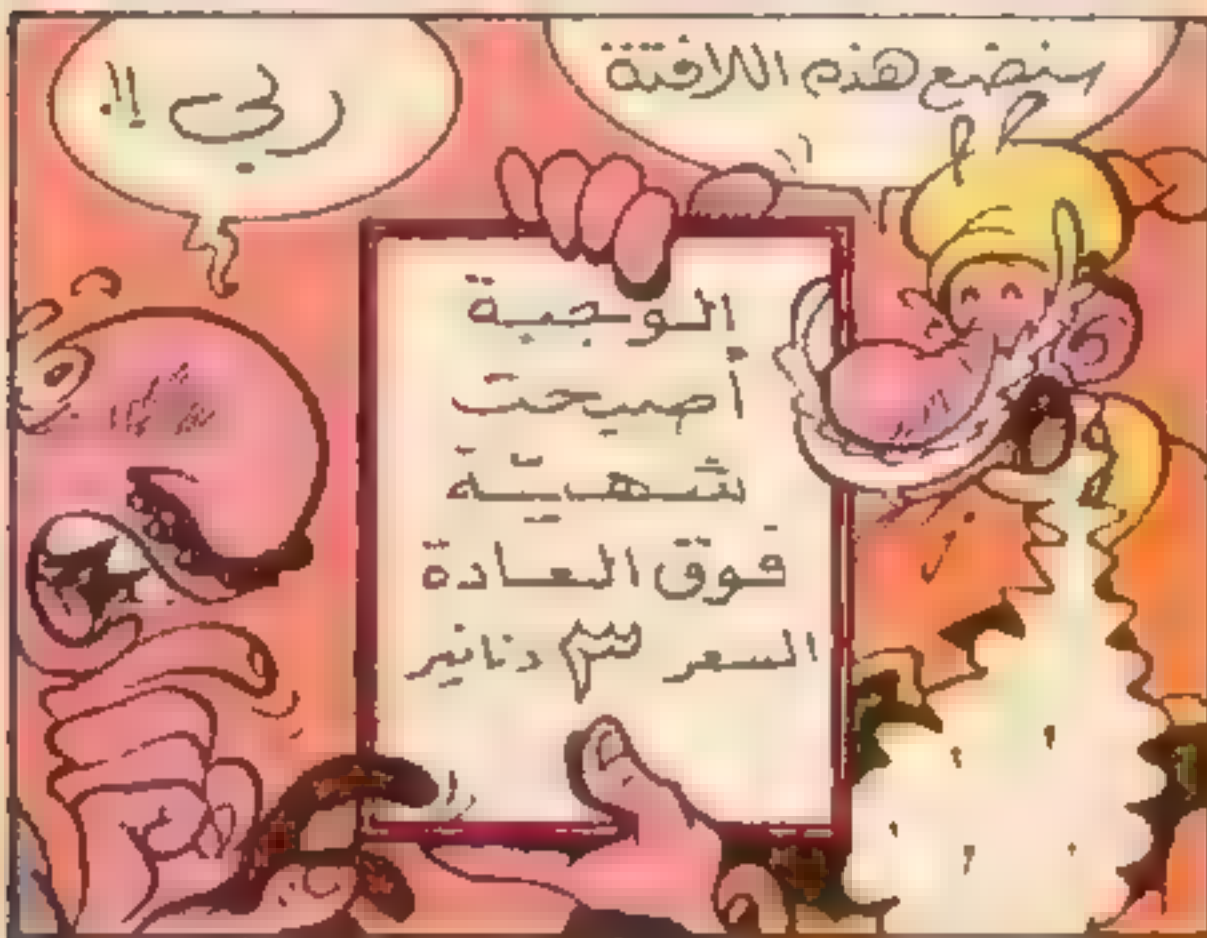 سنضع هذه اللافتة
ربي !!
الوجبة
أصبحت
شهيّة
فوق العادة
السعر ٣ دنانير